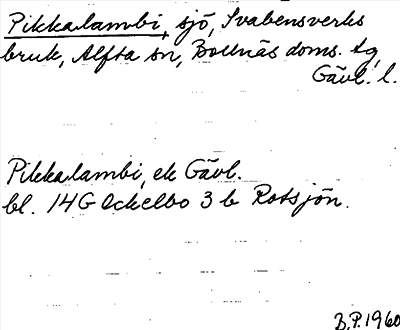 Pikkalambi, sjö, Svabensverks
bruk, Alfta sn, Bollnäs doms. tg,
Gävl. l.
Pikkalambi, ek Gävl.
bl. 14G Ockelbo 3 b Rotsjön.
B.P. 1960